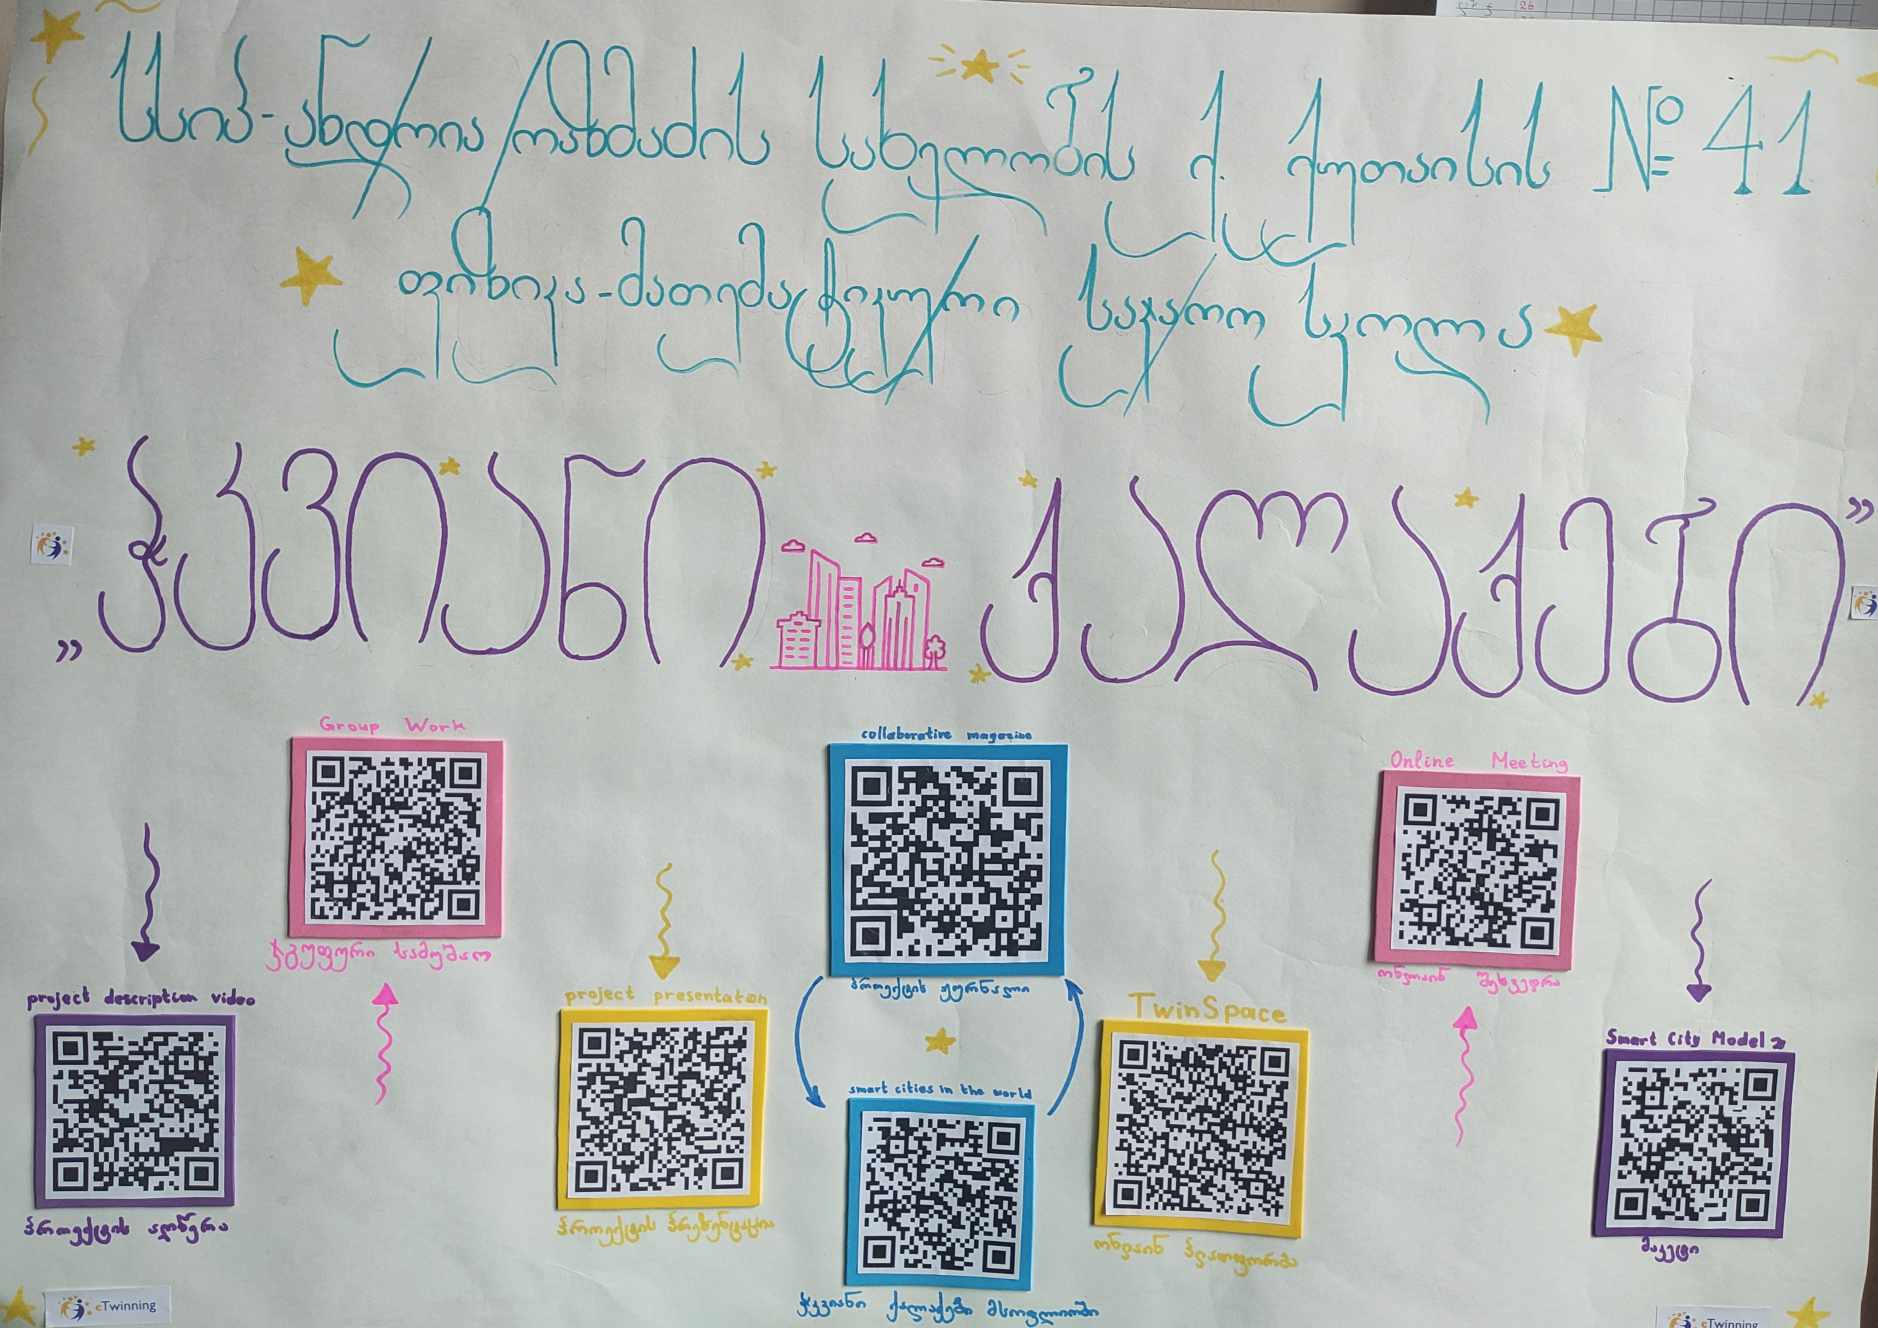 სსიპ-ანდრია რაზმაძის სახელობის ქ. ქუთაისის №41
ფიზიკა-მათემატიკური საჯარო სკოლა
„ჭკვიანი ქალაქები”
Group Work
ჯგუფური სამუშაო
collaborative magazine
პროექტის ჟურნალი
Online Meeting
ონლაინ შეხვედრა
project description video
პროექტის აღწერა
project presentation
პროექტის პრეზენტაცია
smart cities in the world
ჭკვიანი ქალაქები მსოფლიოში
TwinSpace
ონლაინ პლათფორმა
Smart City Model
მაკეტი
eTwinning
eTwinning